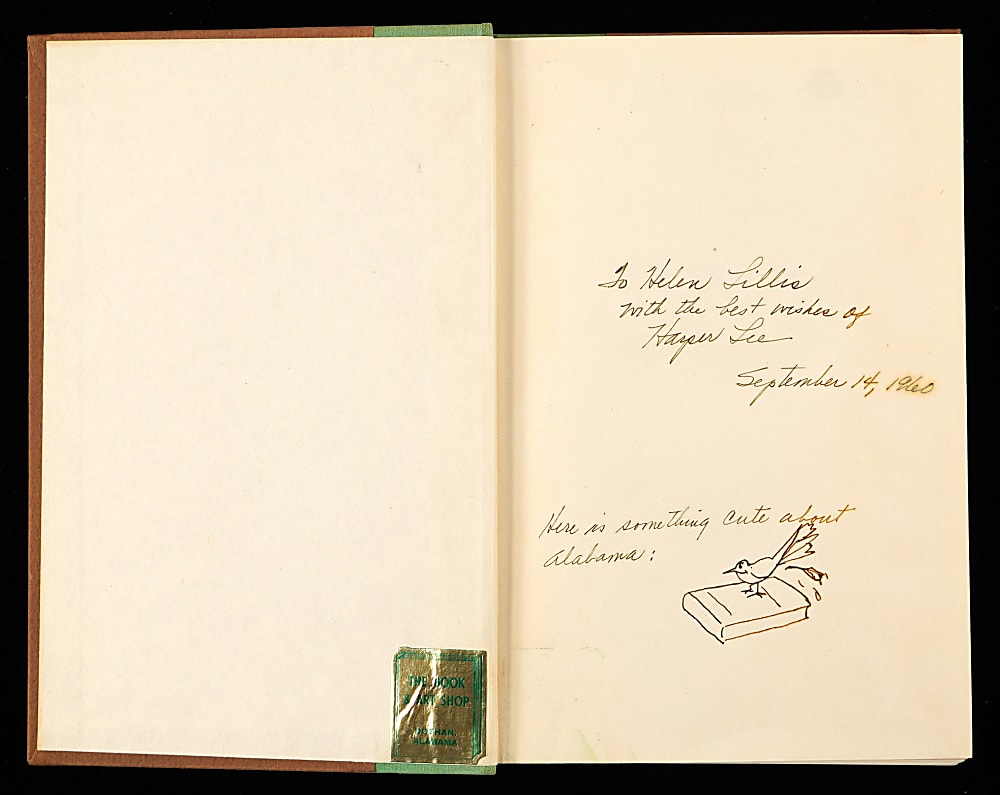 To Helen Lillis
with the best wishes of
Harper Lee
September 14, 1960
Here is something cute about
Alabama:
THE BOOK
& ART SHOP
DOTHAN,
ALABAMA